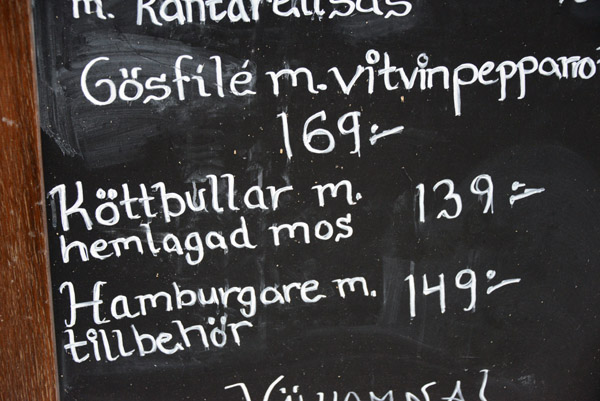 m. kantarellsås
Gösfilé m. vitvinpepparro
169:-
Köttbullar m. 139:-
hemlagad mos
Hamburgare m. 149:-
tillbehör